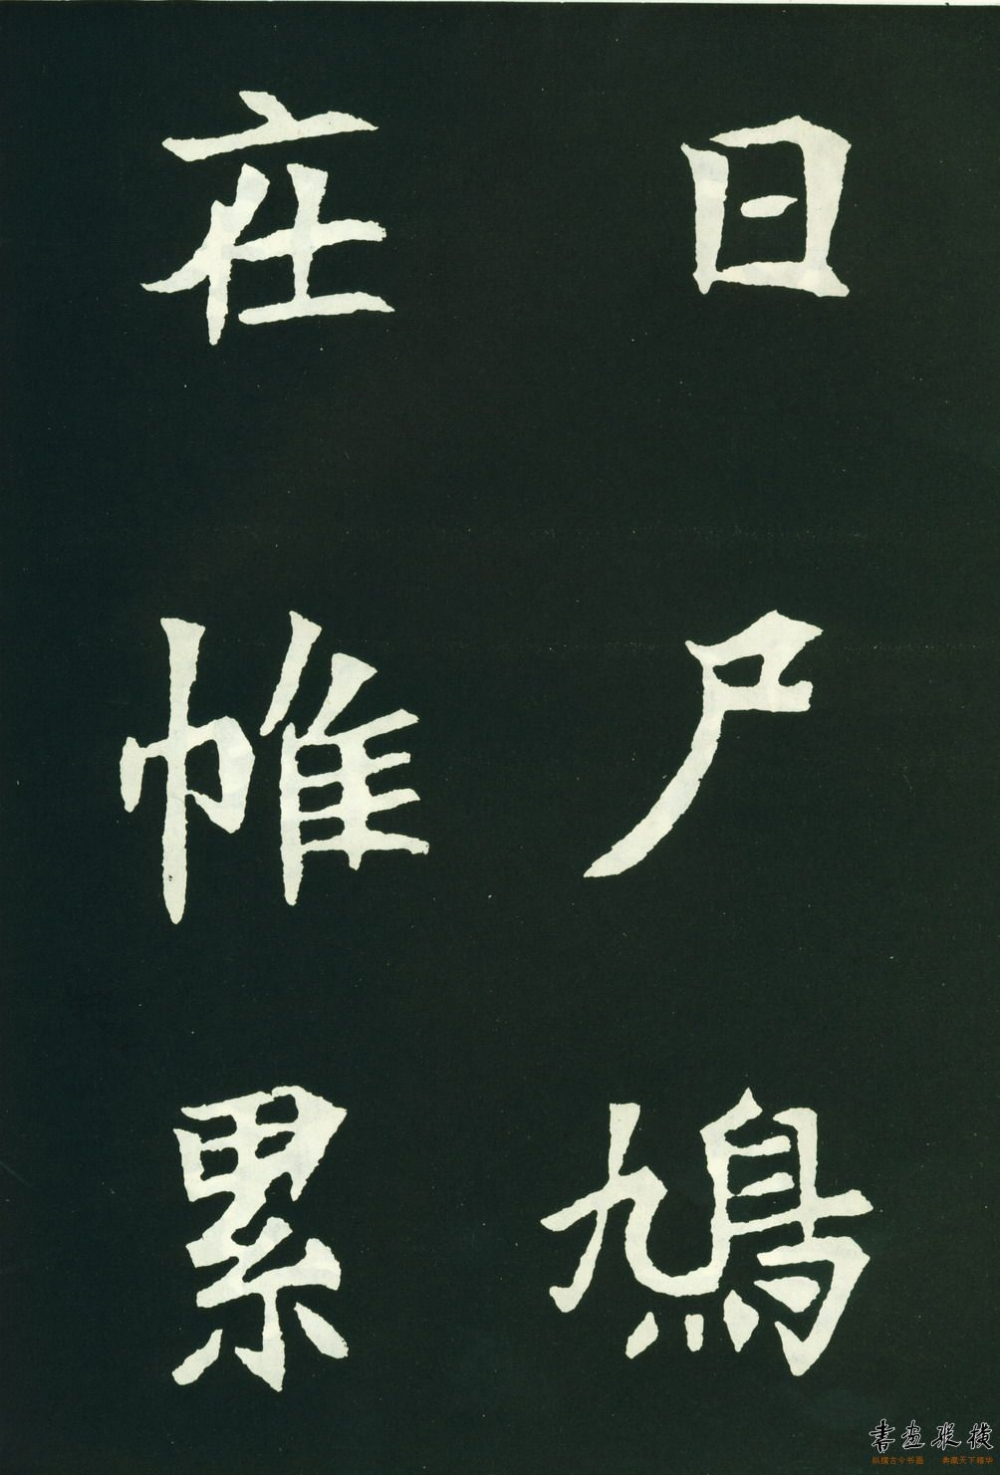 日尸鳩
在帷累
書画纵横
纵横古今书画 典藏天下精华